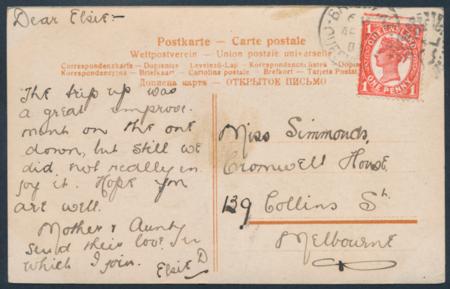 Dear Elsie:-
Postkarte - Carte postale
Weltpostverein - Union postale universelle
Correspondenzkarte - Dopisnice - Levelező-Lap - Korrespondenzkort - Dopis
Korespondencyjna - Briefkaart - Cartolina postale - Brefkort - Tarjeta Postal
Дописна карта - ОТКРЫТОЕ ПИСЬМО
QUEENSLAND
1 1
ONE PENNY
The trip up was
a great improve
ment on the one
down, but still we
did not really in
joy it. Hope you
are well.
Mother & Aunty
send their love, in
which I join.
Elsie D
Miss Simmonds,
Cromwell House,
139 Collins St
Melbourne